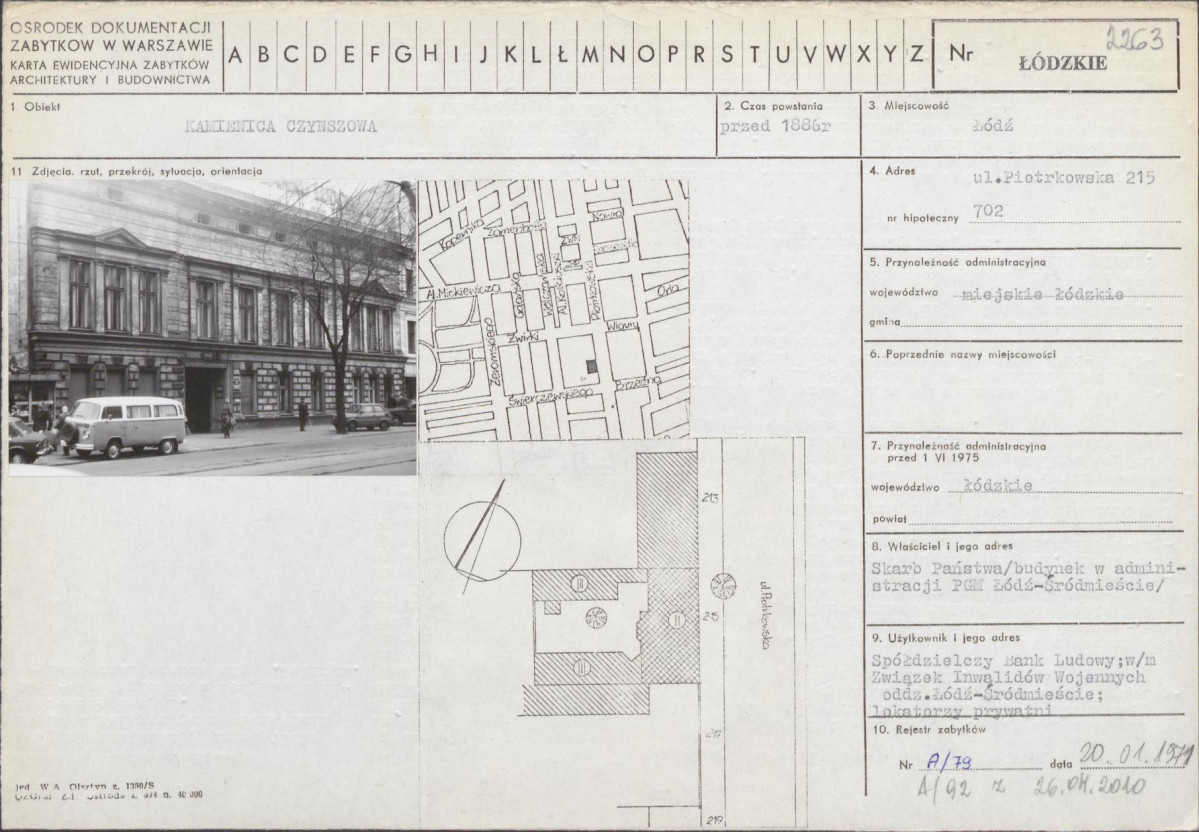 OŚRODEK DOKUMENTACJI
ZABYTKÓW W WARSZAWIE
KARTA EWIDENCYJNA ZABYTKÓW
ARCHITEKTURY I BUDOWNICTWA
A B C D E F G H I J K L Ł M N O P R S T U V W X Y Z
Nr
2263
ŁÓDZKIE
1 Obiekt
KAMIENICA CZYNSZOWA
2. Czas powstania
przed 1886r
3. Miejscowość
Łódź
11 Zdjęcia, rzut, przekrój, sytuacja, orientacja
4. Adres
ul.Piotrkowska 215
nr hipoteczny 702
5. Przynależność administracyjna
województwo miejskie łódzkie
gmina
6. Poprzednie nazwy miejscowości
7. Przynależność administracyjna
przed 1 VI 1975
województwo łódzkie
powiat
8. Właściciel i jego adres
Skarb Państwa/budynek w admini-
stracji PGM Łódź-Śródmieście/
9. Użytkownik i jego adres
Spółdzielczy Bank Ludowy;w/m
Związek Inwalidów Wojennych
oddz.Łódź-Śródmieście;
lokatorzy prywatni
10. Rejestr zabytków
Nr A/79 data 20.01.1971
A/92 z 26.04.2010
Kopernika
Zamenhofa
Nawrot
Al.Mickiewicza
Gdańska
Wólczańska
Al.Kościuszki
Piotrkowska
Orla
Żeromskiego
Żwirki
Wigury
Świerczewskiego
Brzeźna
213
III
215
II
III
ul.Piotrkowska
217
219
jed. W.A. Olsztyn z. 1380/S